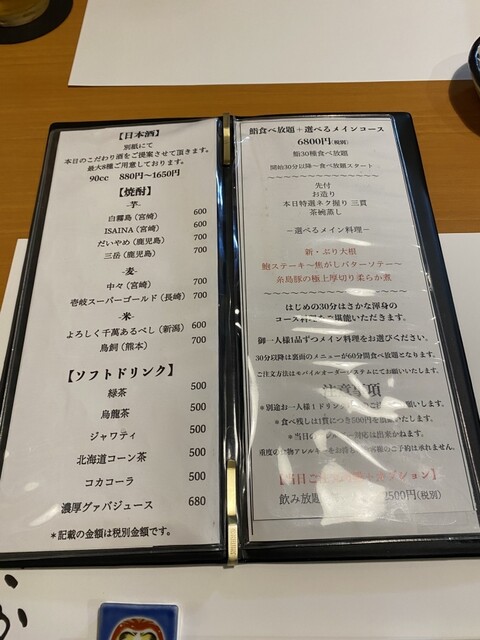 【日本酒】
別紙にて
本日のこだわり酒をご提案させて頂きます。
最大8種ご用意しております。
90cc 880円〜1650円
【焼酎】
-芋-
白霧島(宮崎) 600
ISAINA(宮崎) 700
だいやめ(鹿児島) 600
三岳(鹿児島) 700
-麦-
中々(宮崎) 700
壱岐スーパーゴールド(長崎) 700
-米-
よろしく千萬あるべし(新潟) 600
鳥飼(熊本) 700
【ソフトドリンク】
緑茶 500
烏龍茶 500
ジャワティ 500
北海道コーン茶 500
コカコーラ 500
濃厚グァバジュース 680
*記載の金額は税別金額です。
鮨食べ放題+選べるメインコース
6800円(税別)
鮨30種食べ放題
開始30分以降〜食べ放題スタート
先付
お造り
本日特選ネタ握り 三貫
茶碗蒸し
−選べるメイン料理−
新・ぶり大根
鮑ステーキ〜焦がしバターソテー〜
糸島豚の極上厚切り柔らか煮
はじめの30分はさかな渾身の
コース料理をご堪能いただきます。
御一人様1品ずつメイン料理をお選びください。
30分以降は裏面のメニューが60分間食べ放題となります。
ご注文方法はモバイルオーダーシステムにてお願いいたします。
注意事項
*別途お一人様1ドリンク お願いします。
*食べ残しは1貫につき500円を頂戴いたします。
*当日の 対応は出来かねます。
重度の食物アレルギーを のご予約は承れません。
【当日 オプション】
飲み放題 2500円(税別)